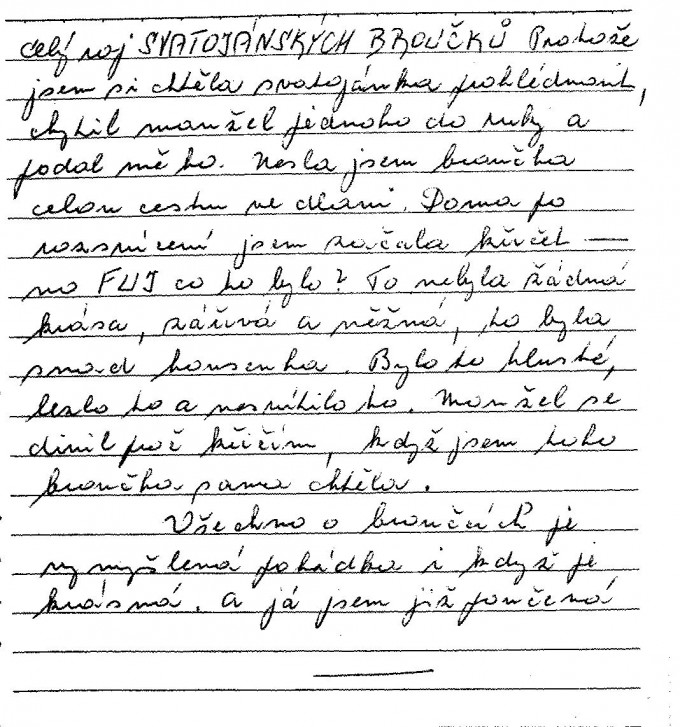 celý roj SVATOJÁNSKÝCH BROUČKŮ Protože
jsem si chtěla svatojánka prohlédnout,
chytil manžel jednoho do ruky a
podal mě ho. Nesla jsem broučka
celou cestu ve dlani. Doma po
rozsvícení jsem začala křičet —
no FUJ co to bylo? To nebyla žádná
krása, zářivá a něžná, to byla
snad housenka. Bylo to tlusté,
lezlo to a nesvítilo to. Manžel se
divil proč křičím, když jsem toho
broučka sama chtěla.
Všechno o broučcích je
vymyšlená pohádka i když je
krásná. A já jsem již poučená